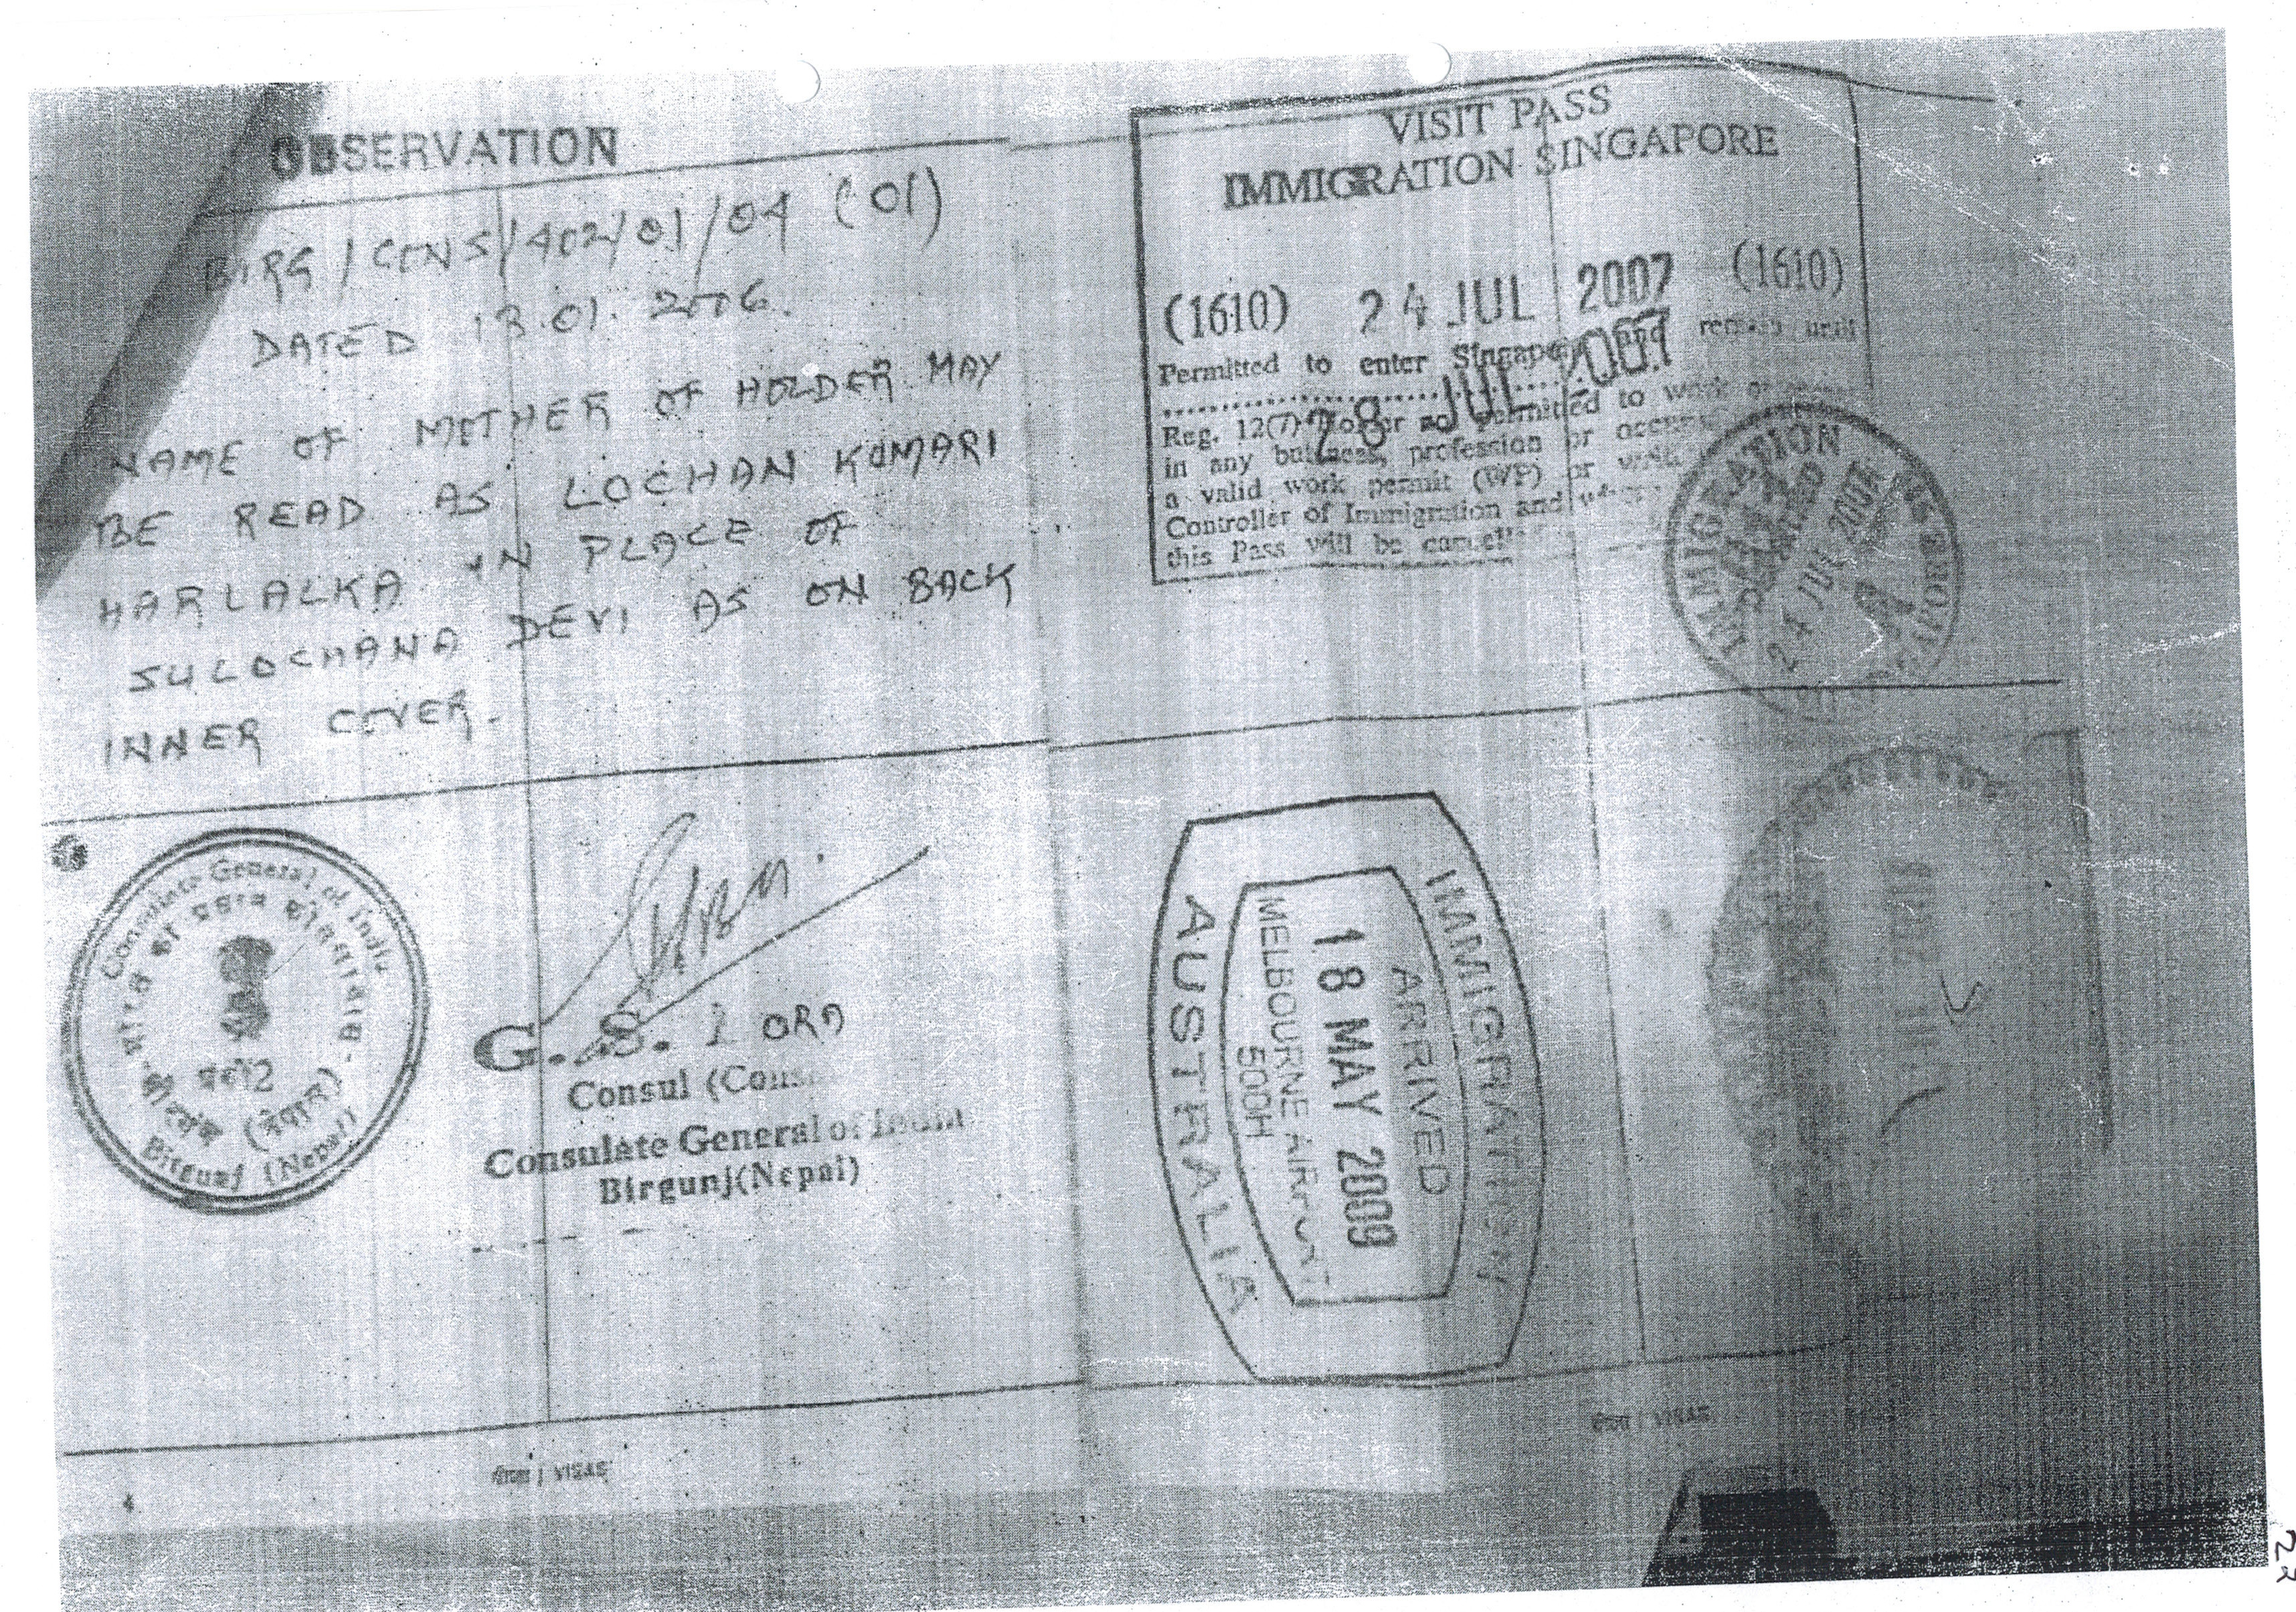 OBSERVATION
BIRG/CONS/402/01/04 (01)
DATED 13.01.2006.
NAME OF MOTHER OF HOLDER MAY
BE READ AS LOCHAN KUMARI
HARLALKA IN PLACE OF
SULOCHANA DEVI AS ON BACK
INNER COVER.
Consulate General of India
भारत का प्रधान कोंसलावास
Birgunj (Nepal)
(नेपाल)
G. S.
Consul
Consulate General of India
Birgunj(Nepal)
4
वीजा / VISAS
VISIT PASS
IMMIGRATION SINGAPORE
(1610) 24 JUL 2007 (1610)
Permitted to enter Singapore and remain until
28 JUL 2007
Reg. 12(7) Holder not permitted to work or
in any business, profession or
a valid work permit (WP) or
Controller of Immigration and
this Pass will be
IMMIGRATION
24 JUL 2007
SINGAPORE
IMMIGRATION
ARRIVED
18 MAY 2009
MELBOURNE AIRPORT
500H
AUSTRALIA
वीजा / VISAS
22